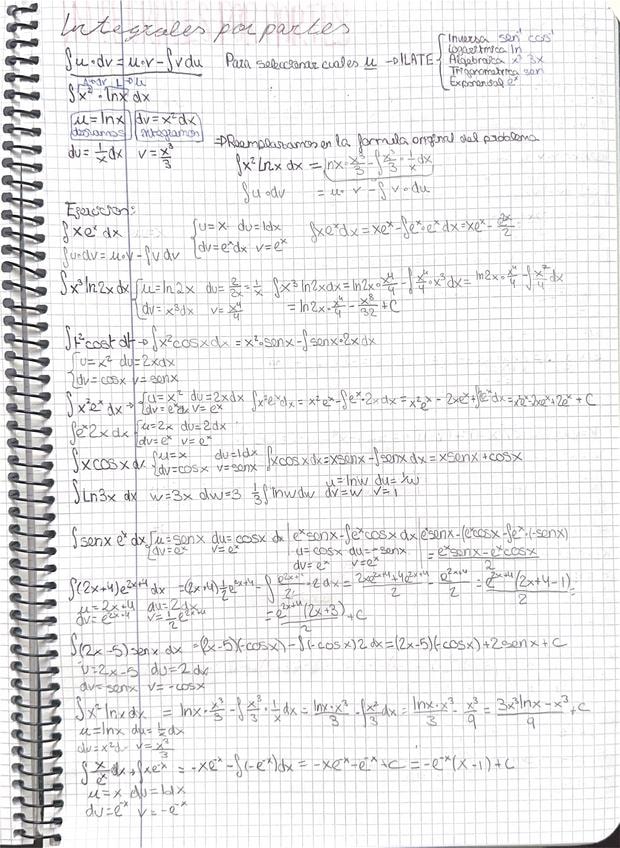 Integrales por partes
∫u·dv = u·v - ∫v du
Para seleccionar cual es u → ILATE { Inversa sen⁻¹ cos⁻¹
Logarítmica ln
Algebraica x² 3x
Trigonometrica sen
Exponencial eˣ
∫x²·lnx dx
u = lnx dv = x²dx
derivamos integramos
⇒ Reemplazamos en la formula original del problema
du = 1/x dx v = x³/3
∫x² lnx dx = lnx·x³/3 - ∫x³/3·1/x dx
∫u·dv = u·v - ∫v·du
Ejercicios:
∫xeˣ dx { u = x du = 1dx ∫xeˣdx = xeˣ - ∫eˣ
∫u·dv = u·v - ∫v dv { dv = eˣdx v = eˣ
∫x³ ln2x dx { u = ln2x du = 2/2x = 1/x ∫x³ ln2x dx = ln2x·x⁴/4 - ∫x⁴/4
{ dv = x³dx v = x⁴/4 = ln2x·x⁴/4 - x⁸/32 + C
∫t²cost dt → ∫x²cosx dx = x²·senx - ∫senx·2x dx
{ u = x² du = 2xdx
{ dv = cosx v = senx
∫x²eˣ dx → { u = x² du = 2xdx ∫x²eˣdx = x²eˣ - ∫eˣ·2x dx = x²eˣ - 2xeˣ + 2eˣ + C
{ dv = eˣdx v = eˣ
∫eˣ2x dx { u = 2x du = 2dx
{ dv = eˣ v = eˣ
∫xcosx dx { u = x du = 1dx ∫xcosx dx = xsenx - ∫senx dx = xsenx + cosx
{ dv = cosx v = senx
∫Ln3x dx w = 3x dw = 3 1/3∫lnwdw u = lnw du = 1/w
dv = w v = 1
∫senx eˣ dx { u = senx du = cosx dx | eˣsenx - ∫eˣcosx dx | eˣsenx - (eˣcosx - ∫eˣ·(-senx)
{ dv = eˣ v = eˣ u = cosx du = -senx = eˣsenx - eˣcosx / 2
dv = eˣ v = eˣ
∫(2x+4)e²ˣ⁺⁴ dx = (2x+4)1/2 e²ˣ⁺⁴ - ∫e²ˣ⁺⁴/2·2dx = 2xe²ˣ⁺⁴+4e²ˣ⁺⁴/2 - e²ˣ⁺⁴/2 = e²ˣ⁺⁴(2x+4-1)/2 =
u = 2x+4 du = 2dx = e²ˣ⁺⁴(2x+3)/2 + C
dv = e²ˣ⁺⁴ v = 1/2 e²ˣ⁺⁴
∫(2x-5)senx dx = (2x-5)(-cosx) - ∫(-cosx)2dx = (2x-5)(-cosx) + 2senx + C
u = 2x-5 du = 2dx
dv = senx v = -cosx
∫x² lnx dx = lnx·x³/3 - ∫x³/3·1/x dx = lnx·x³/3 - ∫x²/3 dx = lnx·x³/3 - x³/9 = 3x³lnx - x³/9 + C
u = lnx du = 1/x dx
dv = x²d v = x³/3
∫x/eˣ dx → ∫xe⁻ˣ = -xe⁻ˣ - ∫(-e⁻ˣ)dx = -xe⁻ˣ - e⁻ˣ + C = -e⁻ˣ(x-1) + C
u = x du = 1dx
dv = e⁻ˣ v = -e⁻ˣ